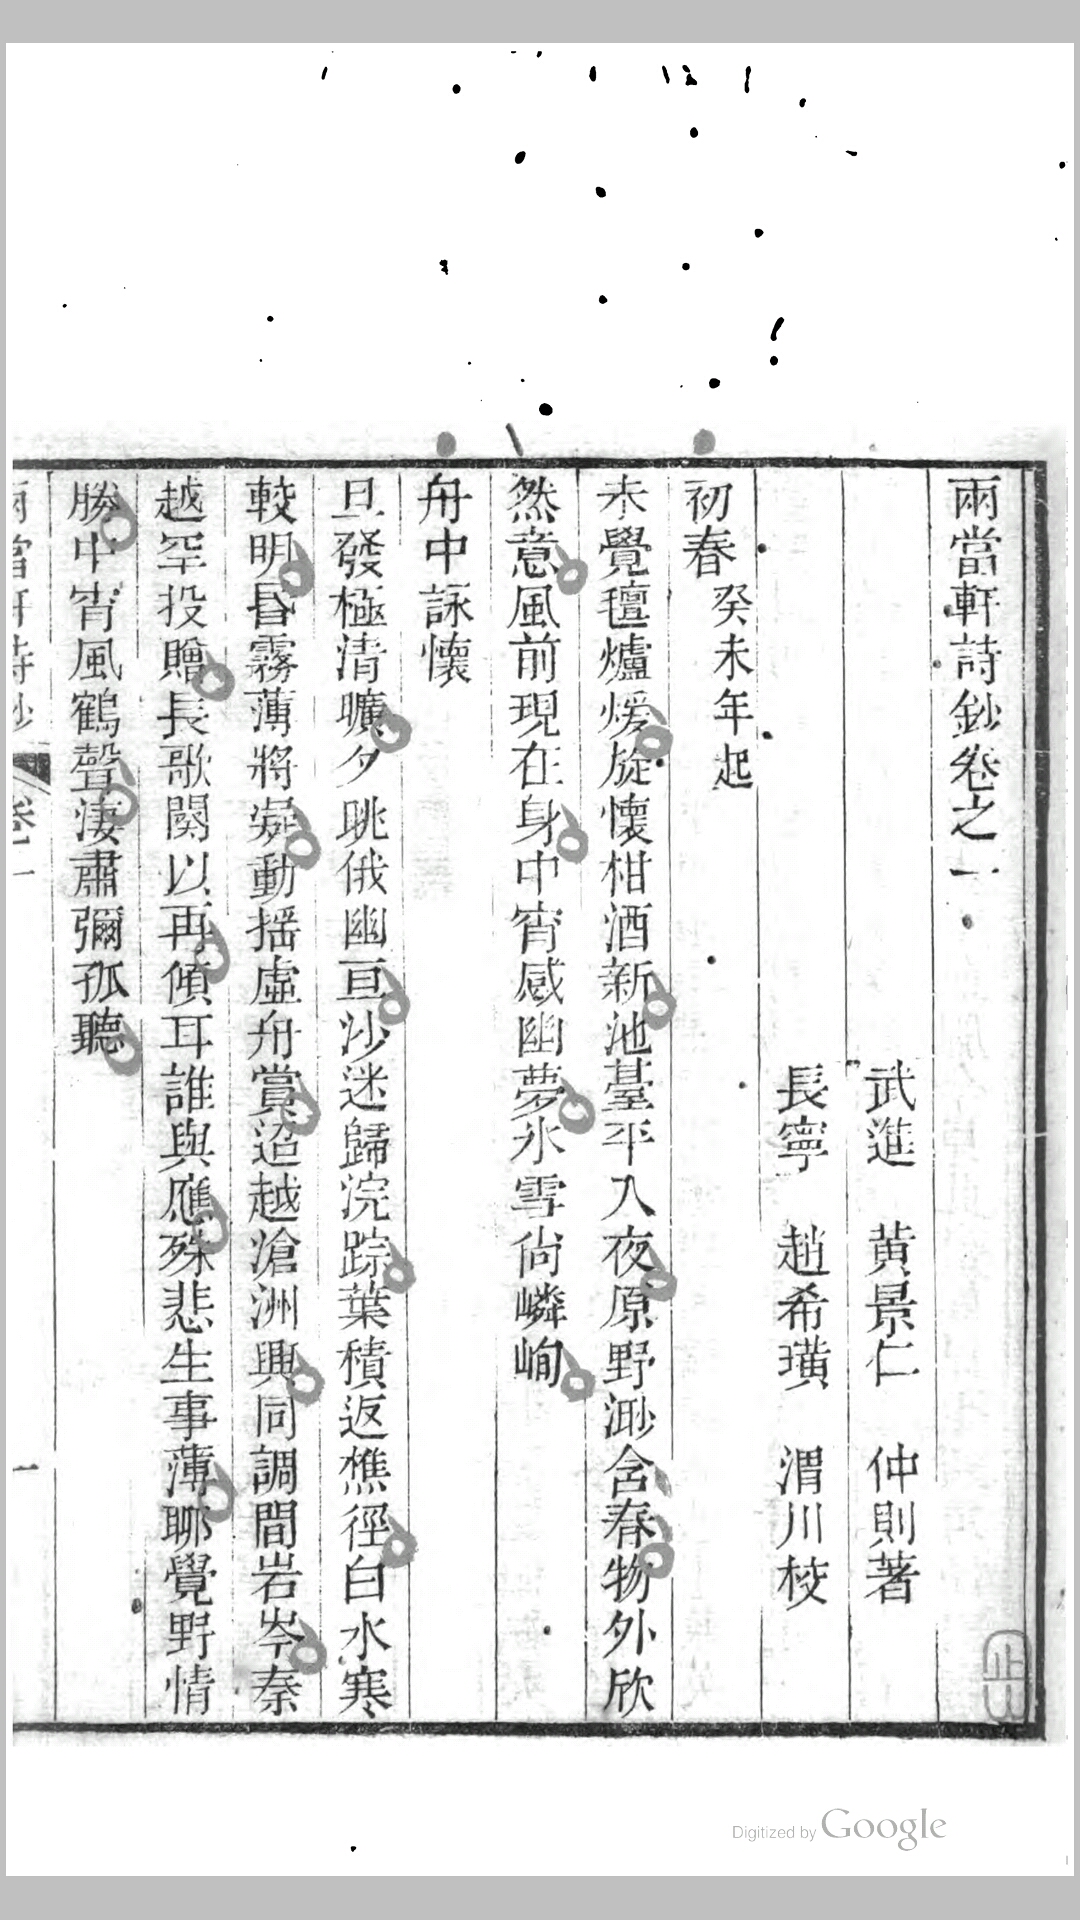 兩當軒詩鈔卷之一
武進 黃景仁 仲則著
長寧 趙希璜 渭川校
初春 癸未年起
未覺氊爐煖旋懷柑酒新池臺平入夜原野渺含春物外欣
然意風前現在身中宵感幽夢氷雪尙嶙峋
舟中詠懷
旦發極清曠夕眺俄幽亘沙迷歸浣踪葉積返樵徑白水寒
較明昏霧薄將凝動揺虛舟賞迢越滄洲興同調間岩岑奏
越罕投贈長歌閱以再傾耳誰與應殊悲生事薄聊覺野情
勝中宵風鶴聲淒肅彌孤聽
卷一
一
Digitized by Google